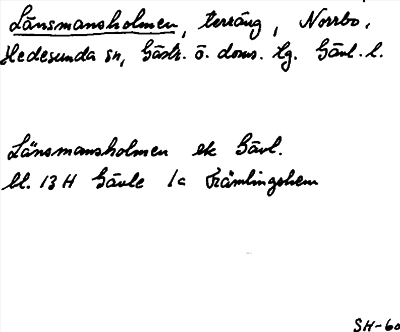 Länsmansholmen, terräng, Norrbo,
Hedesunda sn, Gästr. ö. doms. tg. Gävl. l.
Länsmansholmen ek Gävl.
bl. 13 H Gävle 1c Främlingshem
SH-60